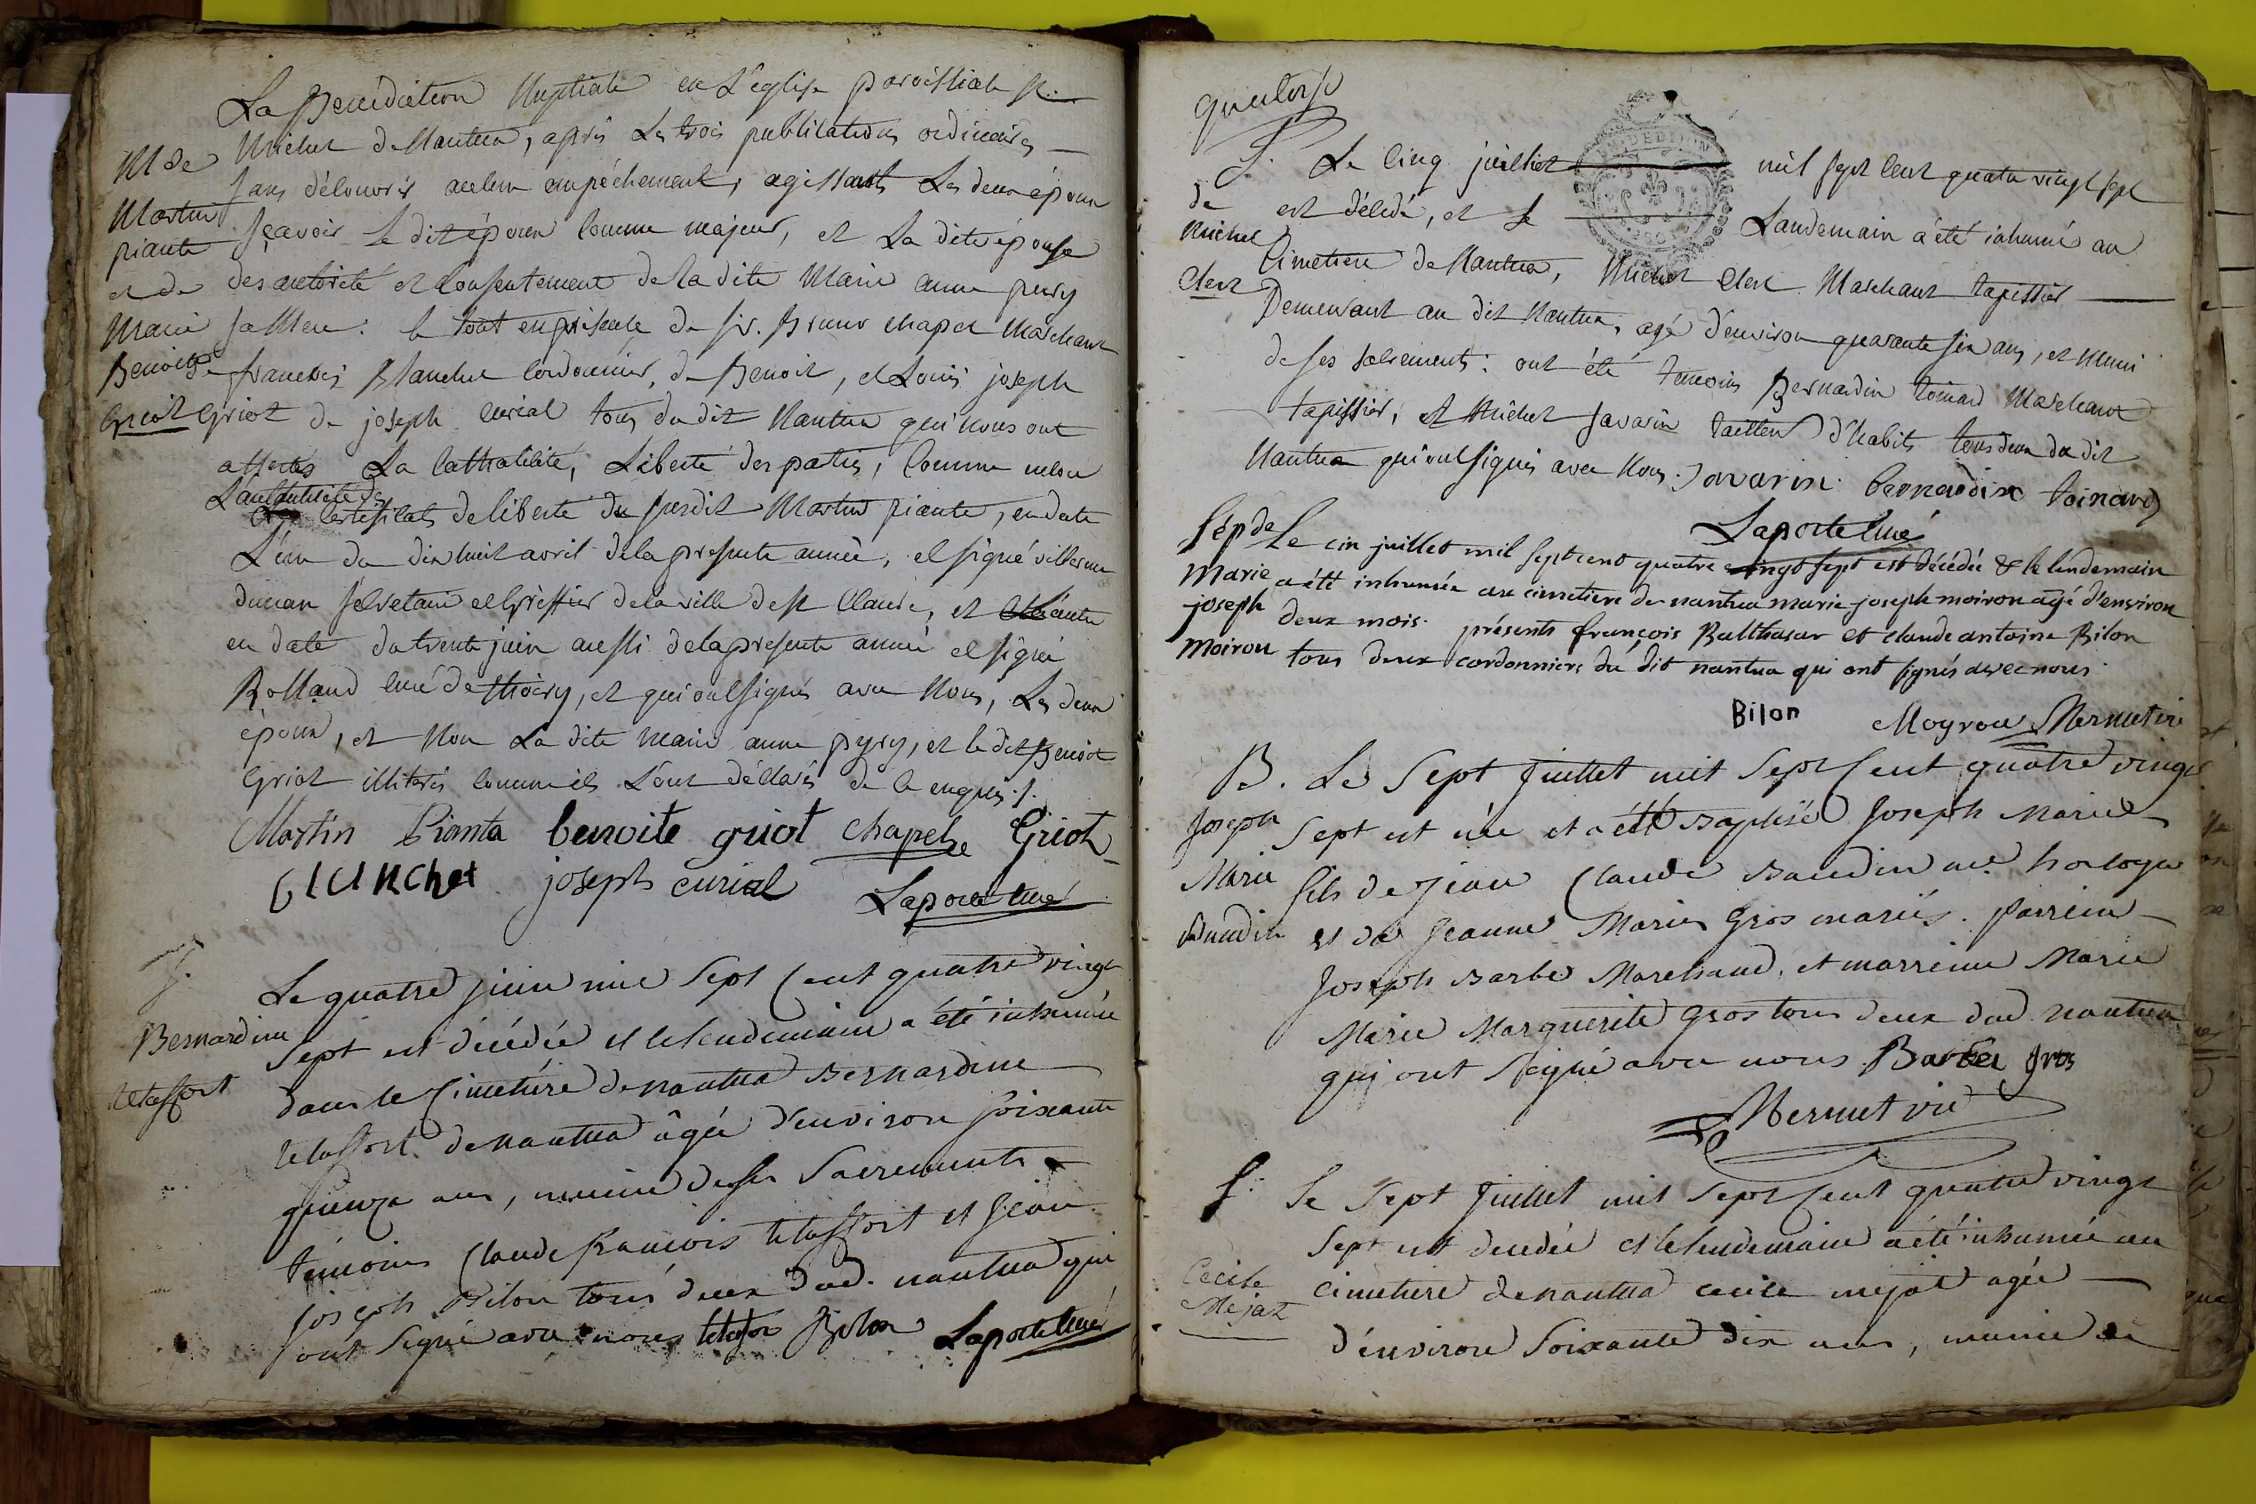 La Benédiction Nuptiale en L'église paroissiale St.
Michel de Nantua, après Les trois publications ordinaires
M de
sans découvrir aucun empêchement, agissants Les deux époux
Martin
piante
sçavoir le dit époux comme majeur, et La dite épouse
et de
des autorité et Consentement de la dite Marie anne
Marie
sa Mere: le tout en présence de sr. chapel Marchand
Benoite
françois Blanchet Cordonnier, de Benoit, et Louis joseph
Griot
Griot de joseph curial tous du dit Nantua qui nous ont
attestés La Catholicité, Liberté des parties, Comme
L'authenticité des
Certificats de liberté du susdit Martin piante, en date
L'un du dix huit avril de la presente année, et signé
Secretaire et Greffier de la ville de st Claude, et L'autre
en date du trente juin aussi de la presente année et signé
Rolland curé de thoiry, et qui ont signés avec Nous, Les deux
époux, et Non La dite Marie anne pyry, et le dit Benoit
Griot illiterés comme ils L'ont déclarés de ce enquis ./.
Martin Pianta benoite griot chapel Griot
blanchet joseph curial Laporte Curé
S.
Le quatre juin mil Sept Cent quatre vingt
Bernardine
Sept est décédée et le lendemain a été inhumée
dans le Cimetière de nantua Bernardine
de nantua âgée d'environ soixante
quinze ans, munie de ses Sacrements
témoins Claude françois et jean
joseph Bilon tous deux dud. nantua qui
ont Signé avec nous Bilon Laporte Curé
quatorse
S. Le Cinq juillet mil sept Cent quatre vingt sept
de
est décédé, et le Landemain a été inhumé au
Michel
Cimetiere de Nantua, Michel Clerc Marchand tapissier
Clerc
Demeurant au dit Nantua, agé d'environ quarante six ans, et Muni
de ses sacrements: ont été temoins Bernardin toinard Marchand
tapissier, et Michel Savarin tailleur d'habits tous deux du dit
Nantua qui ont signés avec Nous. Savarin bernardin toinard
Laporte Curé
Sép de Le cin juillet mil sept cent quatre vingt sept est décédée & le lendemain
Marie a été inhumée au cimetiere de nantua marie joseph moiron agé d'environ
joseph deux mois. présents françois Balthasar et claude antoine Bilon
Moiron tous deux cordonniers du dit nantua qui ont signés avec nous.
Bilon Moyrou Mermet vic
B. Le Sept Juillet mil Sept Cent quatre vingt
Joseph
Sept est née et a été Baptisé Joseph Marie
Marie
fils de Jean Claude Baudin me. horloger
Baudin
et de Jeanne Marie Gros mariés. parrein
Joseph Barbe Marchand, et marreine Marie
Marie Marguerite Gros tous deux dud. nantua
qui ont Signé avec nous Barbe Gros
Mermet vic
S. Le Sept Juillet mil Sept Cent quatre vingt
Sept est décédée et le lendemain a été inhumée au
Cecile
Mejat
cimetiere de nantua cecile mejat agée
d'environ Soixante dix ans, munie de